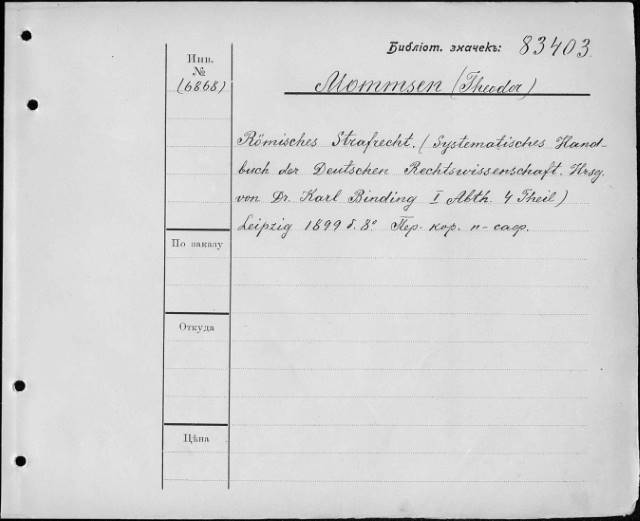 Библіот. значекъ: 83403
Инв.
№
(6868)
Mommsen (Theodor)
Römisches Strafrecht. (Systematisches Hand-
buch der Deutschen Rechtswissenschaft. Hrsg.
von Dr. Karl Binding I Abth. 4 Theil)
Leipzig 1899 г. 8° Пер. кор. п-саф.
По заказу
Откуда
Цѣна